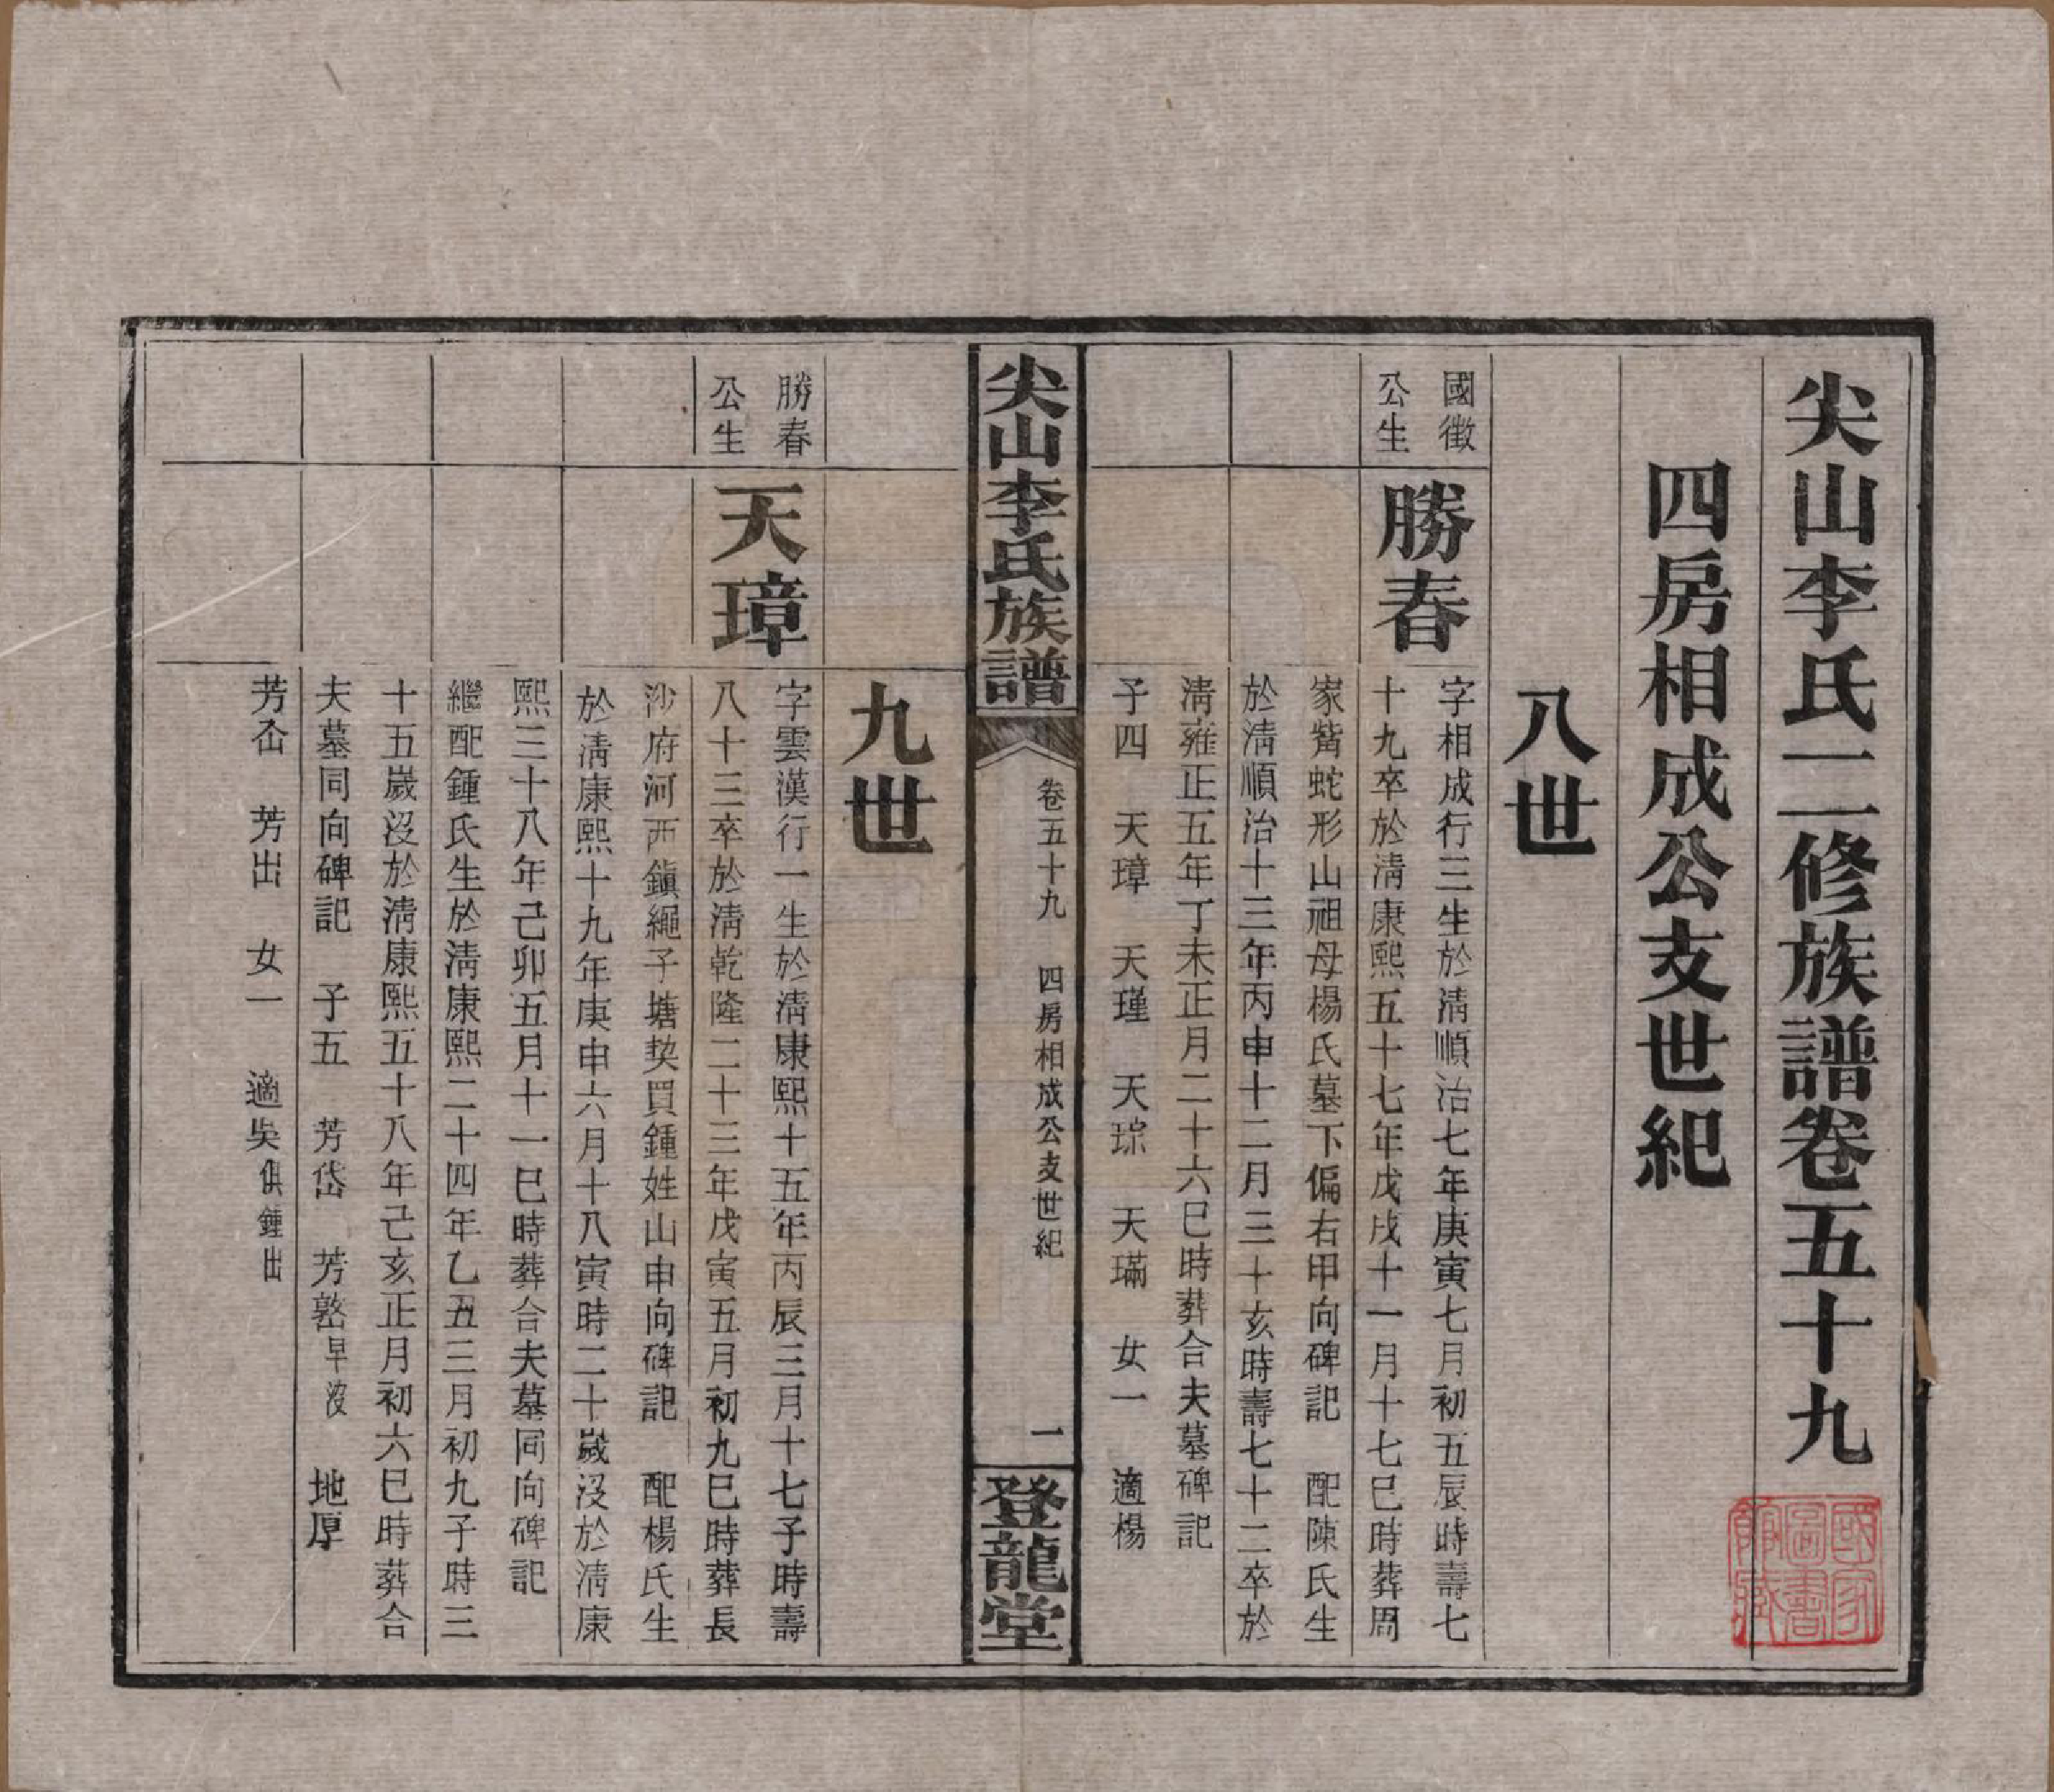 尖山李氏二修族譜卷五十九
四房相成公支世紀
八世
國徵
公生
勝春
字相成行三生於清順治七年庚寅七月初五辰時壽七
十九卒於清康熙五十七年戊戌十一月十七巳時葬周
家觜蛇形山祖母楊氏墓下偏右甲向碑記　配陳氏生
於清順治十三年丙申十二月三十亥時壽七十二卒於
清雍正五年丁未正月二十六巳時葬合夫墓碑記
子四　天璋　天瑾　天琮　天璊　女一　適楊
尖山李氏族譜
卷五十九　四房相成公支世紀
二
登龍堂
九世
勝春
公生
天璋
字雲漢行一生於清康熙十五年丙辰三月十七子時壽
八十三卒於清乾隆二十三年戊寅五月初九巳時葬長
沙府河西鎮繩子塘契買鍾姓山申向碑記　配楊氏生
於清康熙十九年庚申六月十八寅時二十歲沒於清康
熙三十八年己卯五月十一巳時葬合夫墓同向碑記
繼配鍾氏生於清康熙二十四年乙丑三月初九子時三
十五歲沒於清康熙五十八年己亥正月初六巳時葬合
夫墓同向碑記　子五　芳岱　芳嶅早沒　地厚
芳屳　芳出　女一　適吳俱鍾出
國家圖書館藏